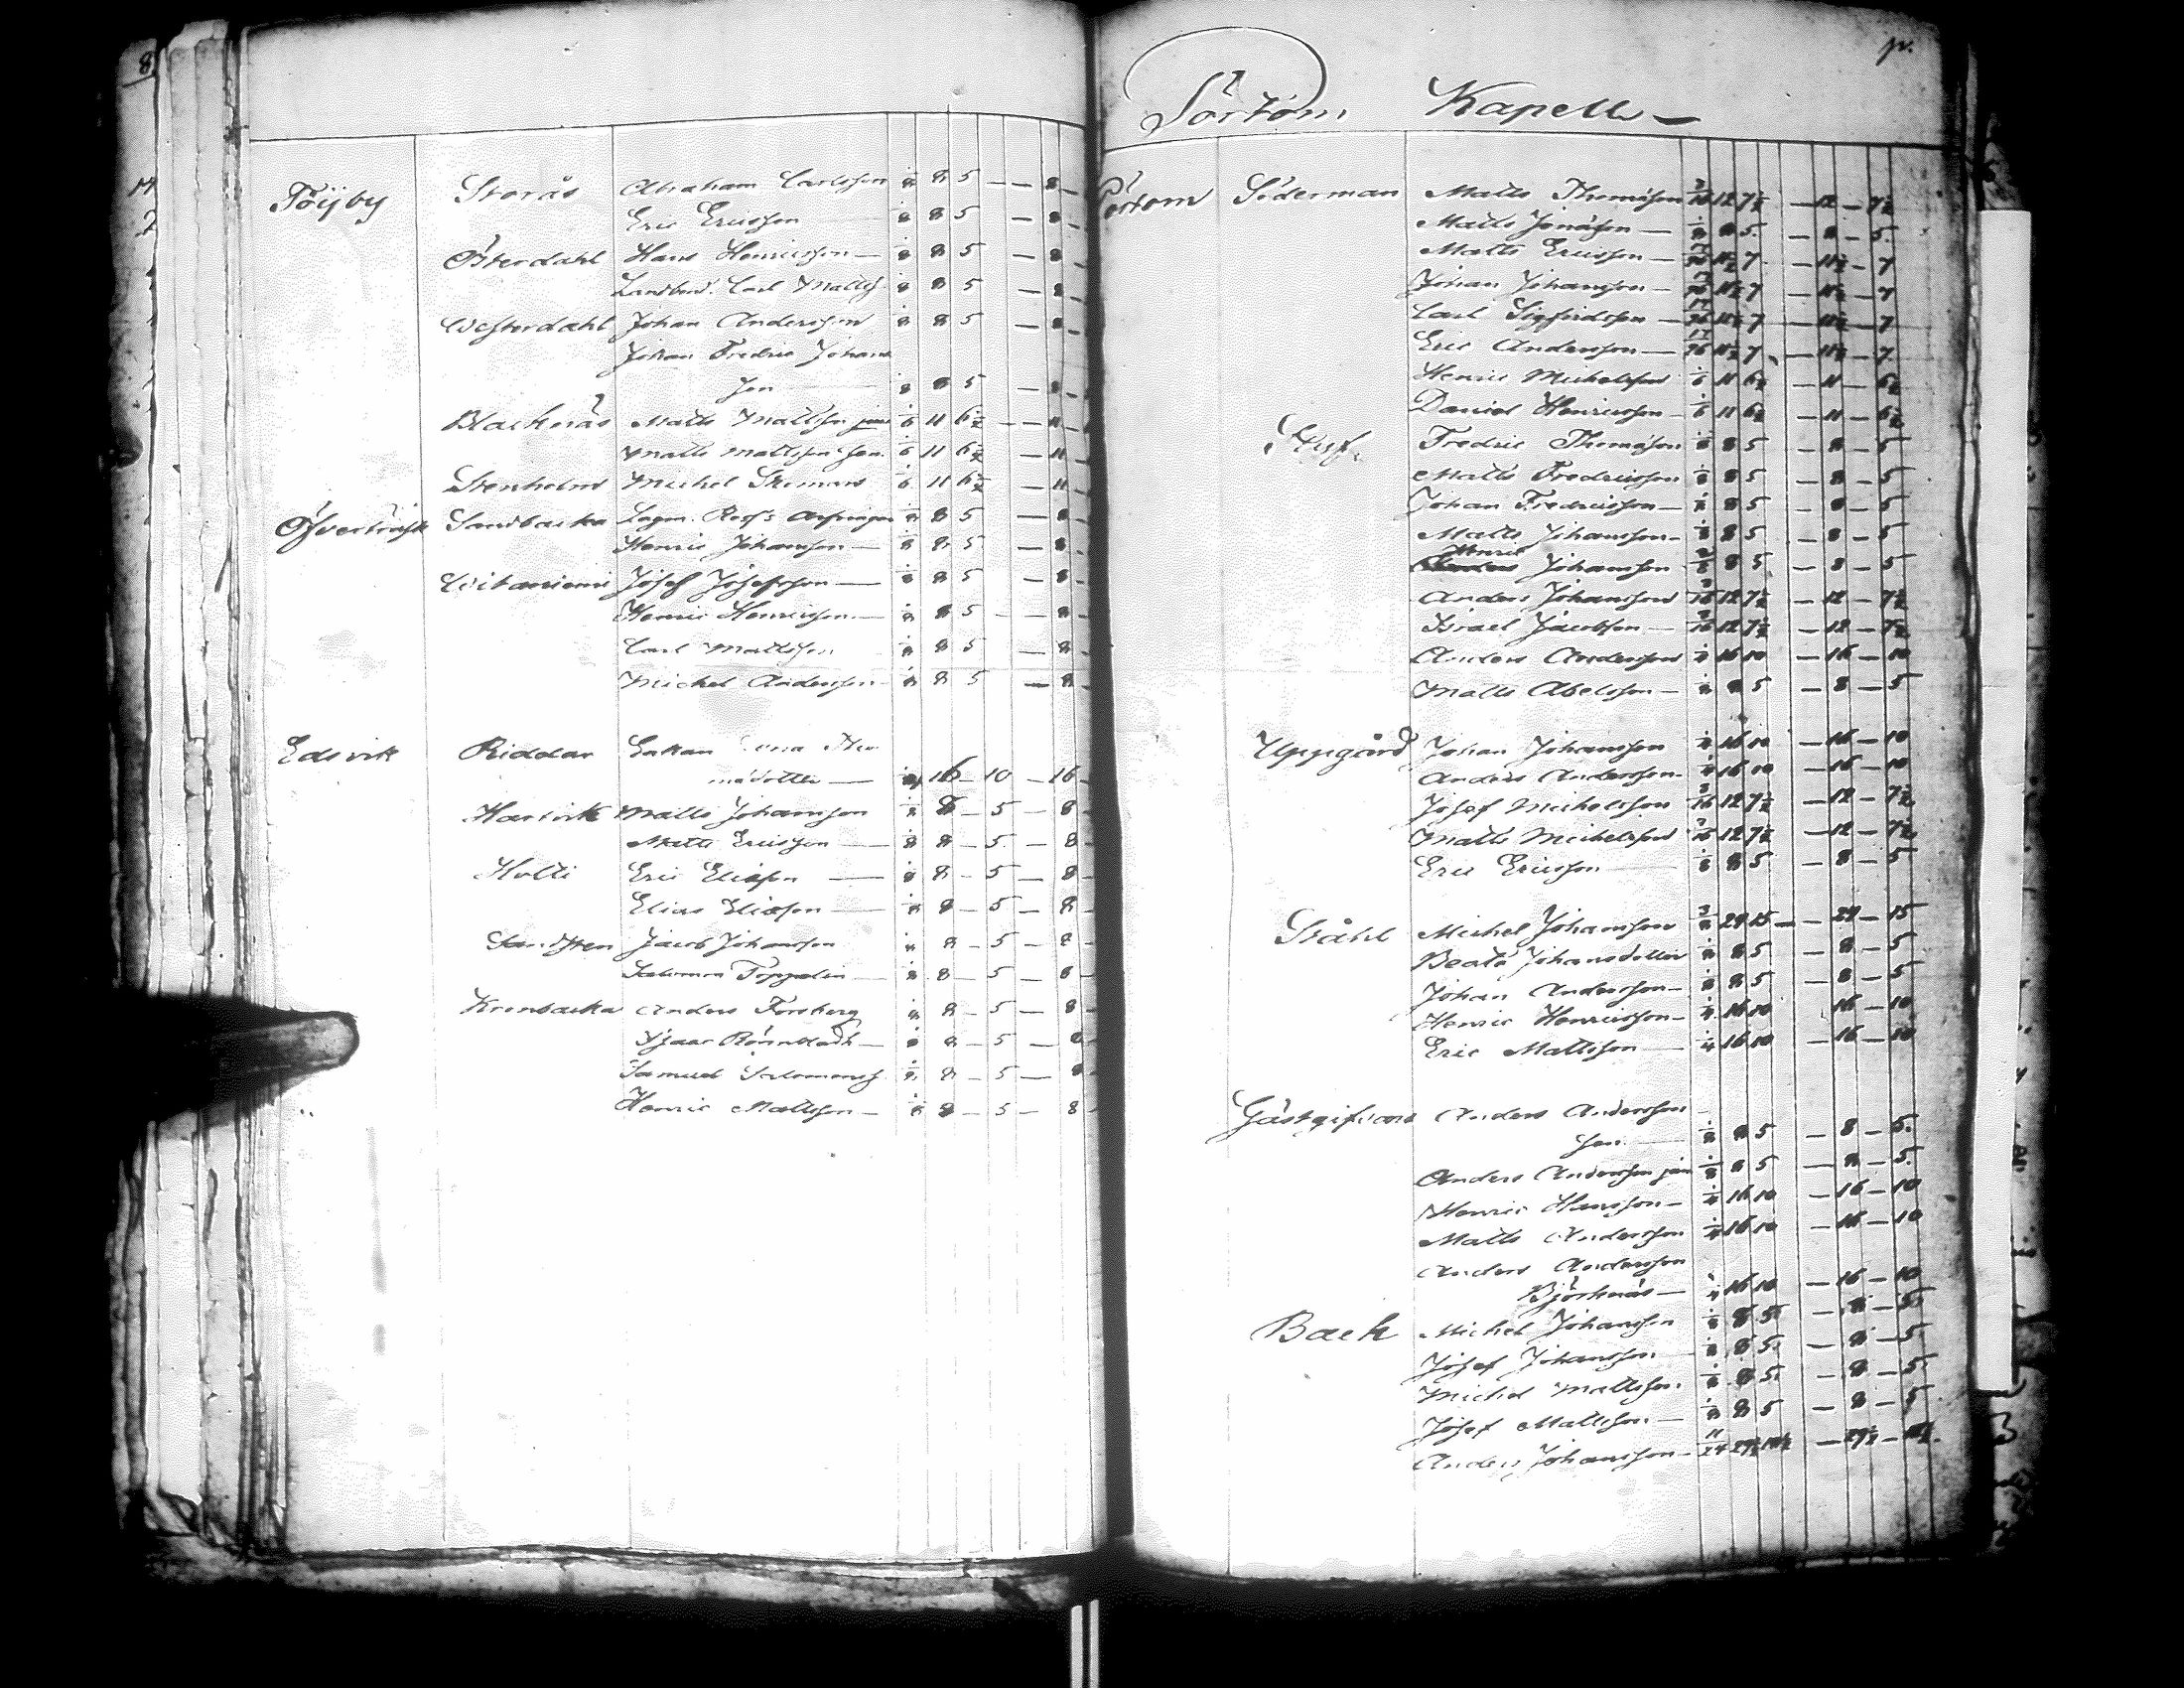 8
Töijby Storås Abraham Carlsson 1/8 8 5 — — 8 —
Eric Ericsson 1/8 8 5 — 8 —
Österdahl Hans Henricsson — 1/8 8 5 — 8 —
Landbond. Carl Matts 1/8 8 5 — 8 —
Westerdahl Johan Andersson 1/8 8 5 — 8 —
Johan Fredric Johans
son 1/8 8 5 — 8 —
Blacknäs Matts Mattsson jun 1/6 11 6 1/2 — — 11 —
Matts Mattsson Sen. 1/6 11 6 1/2 — 11 —
Stenholm Michel Stenman 1/6 11 6 1/2 — 11 —
Öfverträsk Sandbacka Lagm. Ross's Arfvingar 1/8 8 5 — 8 —
Henric Johansson — 1/8 8 5 — 8 —
Witaniemi Josef Josefsson — 1/8 8 5 — 8 —
Henric Henricsson — 1/8 8 5 — — 8 —
Carl Mattsson 1/8 8 5 — 8 —
Michel Andersson 1/8 8 5 — 8 —
Edsvik Riddar Enkan Tho
masdotter — 1/4 16 — 10 — 16 —
Harvik Matts Johansson 1/8 8 — 5 — 8 —
Matts Ericsson — 1/8 8 — 5 — 8 —
Holti Eric Eliasson — 1/8 8 — 5 — 8 —
Elias Eliasson — 1/8 8 — 5 — 8 —
Sandsten Jacob Johansson 1/8 8 — 5 — 8 —
Salomon Toppelin 1/8 8 — 5 — 8 —
Kronbacka Anders Forsberg 1/8 8 — 5 — 8 —
Isaac Rönnblad — 1/8 8 — 5 — 8
Samuel Salomonss 1/8 8 — 5 — 8
Henric Mattsson — 1/8 8 — 5 — 8 —
Pörtom Kapell —
Pörtom Söderman Matts Thomasson 3/16 12 7 1/2 — 12 — 7 1/2
Matts Jonasson — 1/8 8 5 — 8 — 5
Matts Ericsson — 17/96 11 1/2 7 — 11 1/2 — 7
Johan Johansson — 17/96 11 1/2 7 — 11 1/2 — 7
Carl Sigfridsson — 17/96 11 1/2 7 — 11 1/2 — 7
Eric Andersson — 17/96 11 1/2 7 — 11 1/2 — 7
Henric Michelsson 1/6 11 6 1/2 — 11 — 6 1/2
Daniel Henricsson — 1/6 11 6 1/2 — 11 — 6 1/2
Fredric Thomasson 1/8 8 5 — 8 — 5
Matts Fredricsson 1/8 8 5 — 8 — 5
Johan Fredricsson — 1/8 8 5 — 8 — 5
Matts Johansson — 1/8 8 5 — 8 — 5
Henric
Johansson 1/8 8 5 — 8 — 5
Anders Johansson 3/16 12 7 1/2 — 12 — 7 1/2
Israel Jacobsson — 3/16 12 7 1/2 — 12 — 7 1/2
Anders Andersson 1/4 16 10 — 16 — 10
Matts Abelsson — 1/8 8 5 — 8 — 5
Uppgård Johan Johansson 1/4 16 10 — 16 — 10
Anders Andersson — 1/4 16 10 — 16 — 10
Josef Michelsson 3/16 12 7 1/2 — 12 — 7 1/2
Matts Michelsson 3/16 12 7 1/2 — 12 — 7 1/2
Eric Ericsson 1/8 8 5 — 8 — 5
Ståhl Michel Johansson 3/8 24 15 — — 24 — 15
Beata Johansdotter 1/8 8 5 — 8 — 5
Johan Andersson — 1/8 8 5 — 8 — 5
Henric Henricsson — 1/4 16 10 16 — 10
Eric Mattsson — 1/4 16 10 — 16 — 10
Gästgifvars Anders Andersson
Sen. 1/8 8 5 — 8 — 5
Anders Andersson jun 1/8 8 5 — 8 — 5
Henric Hansson — 1/4 16 10 — 16 — 10
Matts Andersson 1/4 16 10 — 16 — 10
Anders Andersson
Björknäs — 1/4 16 10 — 16 — 10
Back Michel Johansson 1/8 8 5 — 8 — 5
Josef Johansson 1/8 8 5 — 8 — 5
Michel Mattsson 1/8 8 5 — 8 — 5
Josef Mattsson — 1/8 8 5 — 8 — 5
Anders Johansson — 11/24